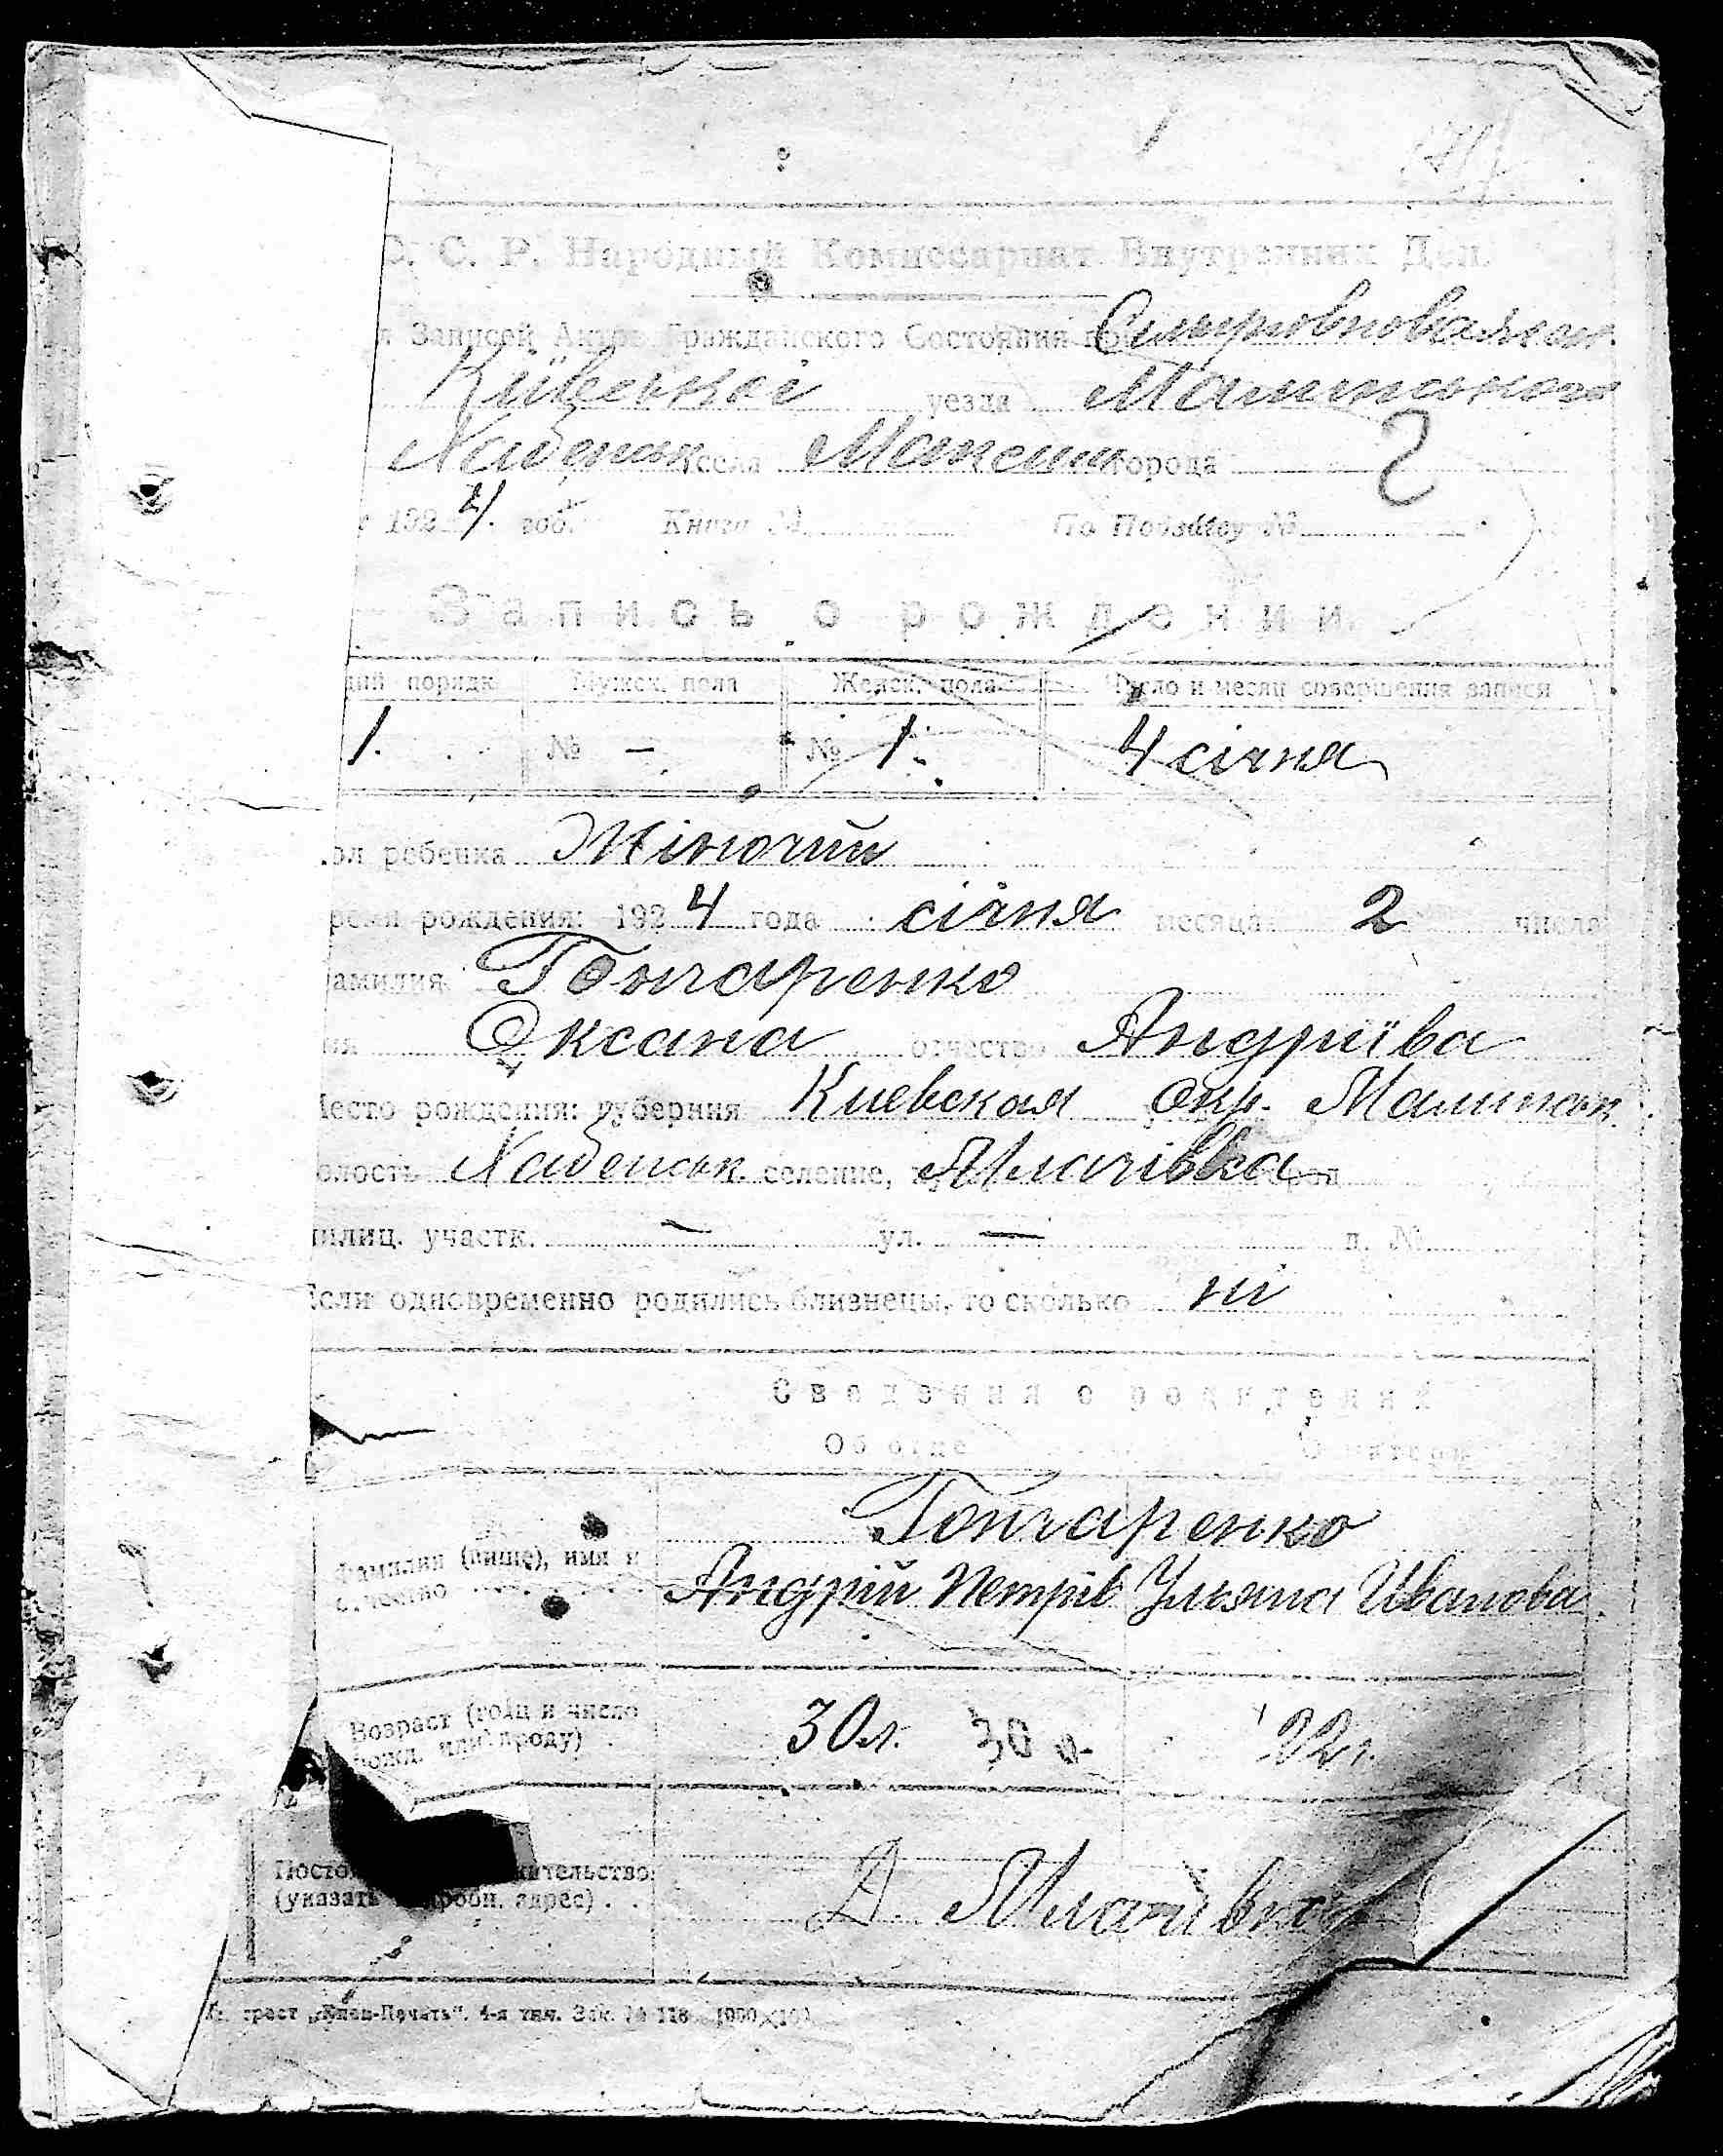 С. С. Р. Народный Комиссариат Внутренних Дел.
Записей Актов Гражданского Состояния при
Київської уезда Малинського
Хабенськ села Максим города
192 4. год. Книга № По Подзаку №
Запись о рождении.
ций порядк Мужск. пола Женск. пола Число и месяц совершения записи
1. № — № 1. 4 січня
ол ребенка Жіночий
ремя рождения: 192 4 года січня месяца 2 числа
амилия Гончаренко
мя Оксана отчество Андриїва
Место рождения: губерния Киевская окр. Малинськ.
олость Хабенськ. селение, Ялачівка
милиц. участк. — ул. — д. №
Если одновременно родились близнецы, то сколько ні
Сведения о родителях
Об отце О матери
Гончаренко
Фамилия (выше), имя и
отчество
Андрій Петрів Ульяна Иванова
Возраст (годы и число
рожд. или проду)
30л. 30 22г.
Посто жительство
(указать дробн. адрес)
Д. Ялачівка
трест „Киев-Печать“. 4-я тип. Зак. № 118